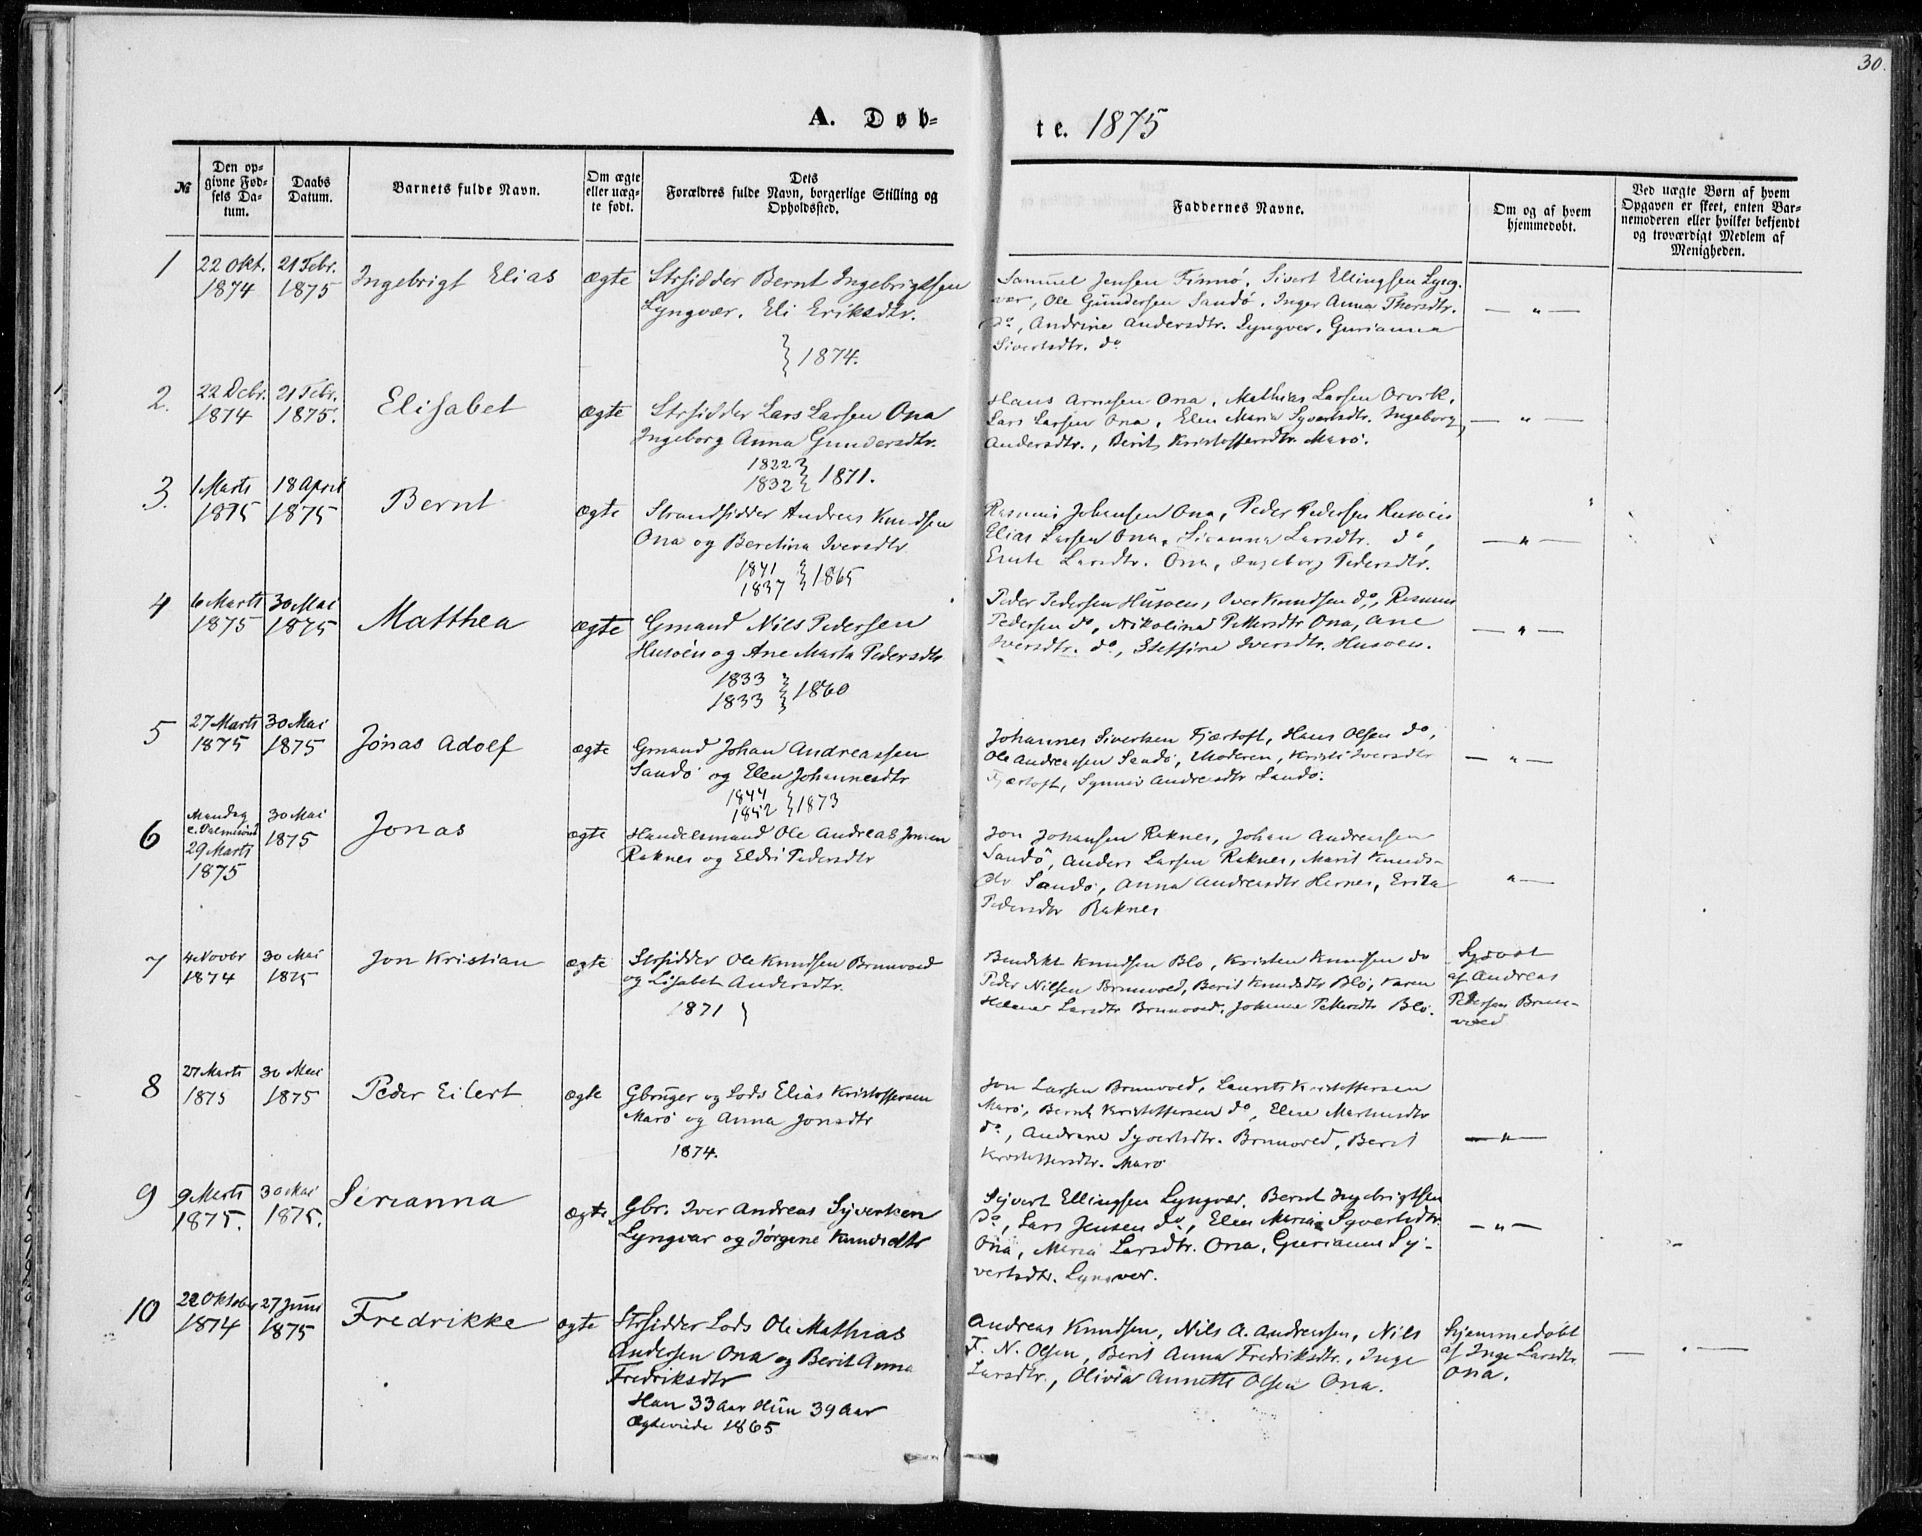 30.
A. Døb-
te. 1875
№
Den op-
givne Fød-
sels Da-
tum.
Daabs
Datum.
Barnets fulde Navn.
Om ægte
eller uæg-
te født.
Dets
Forældres fulde Navn, borgerlige Stilling og
Opholdssted.
Faddernes Navne.
Om og af hvem
hjemmedøbt.
Ved uægte Børn af hvem
Opgaven er skeet, enten Bar-
nemoderen eller hvilket bekjendt
og troværdigt Medlem af
Menigheden.
1
22 Okt.
1874
21 Febr.
1875
Ingebrigt Elias
ægte
Strsidder Bernt Ingebrigtsen
Lyngvær. Eli Eriksdtr.
1874.
Samuel Jensen Finnö, Sivert Ellingsen Lyng-
vær, Ole Gundersen Sandö, Inger Anna Thorsdtr.
do, Andrine Andersdtr. Lyngver, Gurianna
Sivertsdtr. do
— " —
2.
22 Debr.
1874
21 Febr.
1875.
Elisabet
ægte
Strsidder Lars Larsen Ona
Ingeborg Anna Gundersdtr.
1822
1832 } 1871.
Hans Arnesen Ona, Mathias Larsen Orvik,
Lars Larsen Ona, Elen Maria Syvertsdtr. Ingeborg
Andersdtr., Berit Kristoffersdtr. Marö.
— " —
3.
1 Marts
1875
18 April
1875
Bernt
ægte
Strandsidder Andreas Knudsen
Ona og Beretina Iversdtr
1841
1837 } 1865
Rasmus Johansen Ona, Peder Pedersen Husøen
Elias Larsen Ona, Sivanna Larsdtr. do,
Larsdtr. Ona, Ingeborg Pedersdtr.
— " —
4
6 Marts
1875
30 Mai
1875
Matthea
ægte
Gmand Nils Pedersen
Husöen og Ane Marta Pedersdtr
1833
1833 } 1860
Peder Pedersen Husöen, Iver Knudsen do, Rasmus
Pedersen do, Nikolina Pettersdtr Ona, Ane
Iversdtr. do, Steffine Iversdtr. Husoen.
— " —
5
27 Marts
1875
30 Mai
1875
Jonas Adolf
ægte
Gmand Johan Andreassen
Sandö og Elen Johannesdtr
1844
1852 } 1873
Johannes Sivertsen Fjærtoft, Hans Olsen do,
Ole Andreassen Sandö, Moderen, Kristi Iversdtr
Fjærtoft, Synnøv Andreasdtr Sandö.
— " —
6
Mandag
e. Palmesönd
29 Marts
1875
30 Mai
1875
Jonas
ægte
Handelsmand Ole Andreas Jonsen
Raknes og Eldri Pedersdtr
Jon Johansen Raknes, Johan Andreassen
Sandö, Anders Larsen Raknes, Marit Knuds-
dtr Sandö, Anna Andreasdtr Hernes, Erika
Pedersdtr Raknes
" —
7
4 Novbr
1874
30 Mai
1875
Jon Kristian
ægte
Strsidder Ole Knudsen Brunvoed
og Lisabet Andersdtr.
1871
Bendikt Knudsen Blö, Kristen Knudsen do
Peder Nilsen Brunvoed, Berit Knudsdtr Blö, Karen
Helene Larsdtr Brunvoed, Johanne Pettersdtr Blö.
af Andreas
Pedersen Brun-
voed
8
27 Marts
1875
30 Mai
1875
Peder Eilert
ægte
Gbruger og Lods Elias Kristoffersen
Marö og Anna Jonsdtr
1874.
Jon Larsen Brunvoed, Laurits Kristoffersen
Marö, Bernt Kristoffersen do, Elene Martinusdtr
do, Andrine Syvertsdtr. Brunvoed, Berit
Kristoffersdtr. Marö
— " —
9
9 Marts
1875.
30 Mai
1875.
Serianna
ægte
Gbr. Iver Andreas Syvertsen
Lyngvær og Jörgine Knudsdtr
Syvert Ellingsen Lyngver, Bernt Ingebrigtsen
do, Lars Jensen do, Elen Maria Syvertsdtr
Ona, Maria Larsdtr. Ona, Gurianne Sy-
vertsdtr. Lyngver.
— " —
10
22 Oktober
1874
27 Juni
1875
Fredrikke
ægte
Strsidder Lods Ole Mathias
Andersen Ona og Berit Anna
Fredriksdtr
Han 33 Aar Hun 39 Aar
Ægteviede 1865
Andreas Knudsen, Nils A. Andreassen, Nils
F. N. Olsen, Berit Anna Fredriksdtr., Inge
Larsdtr., Olivia Annette Olsen Ona.
Hjemmedøbt
af Inge Larsdtr.
Ona.
— " —